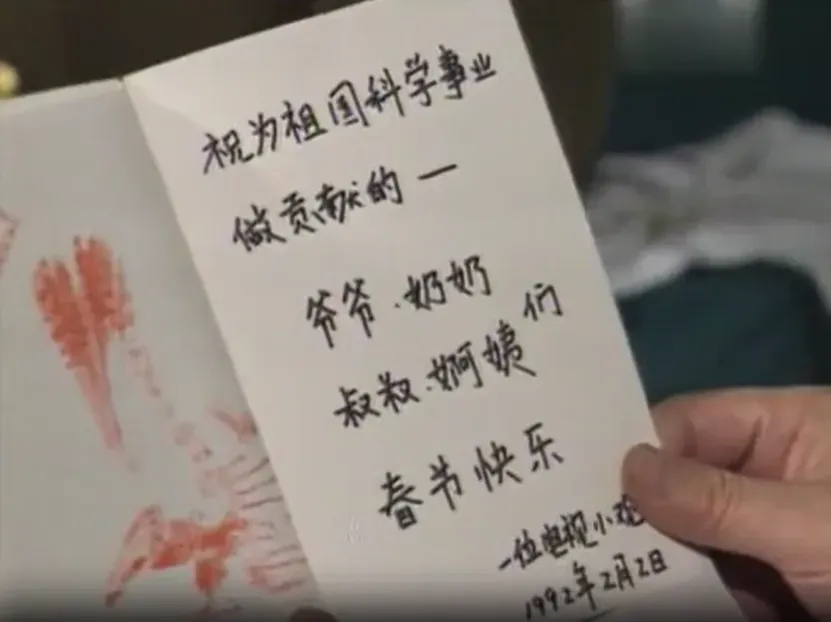 祝为祖国科学事业
做贡献的—
爷爷.奶奶
叔叔.婀姨们
春节快乐
一位电视小
1992年2月2日